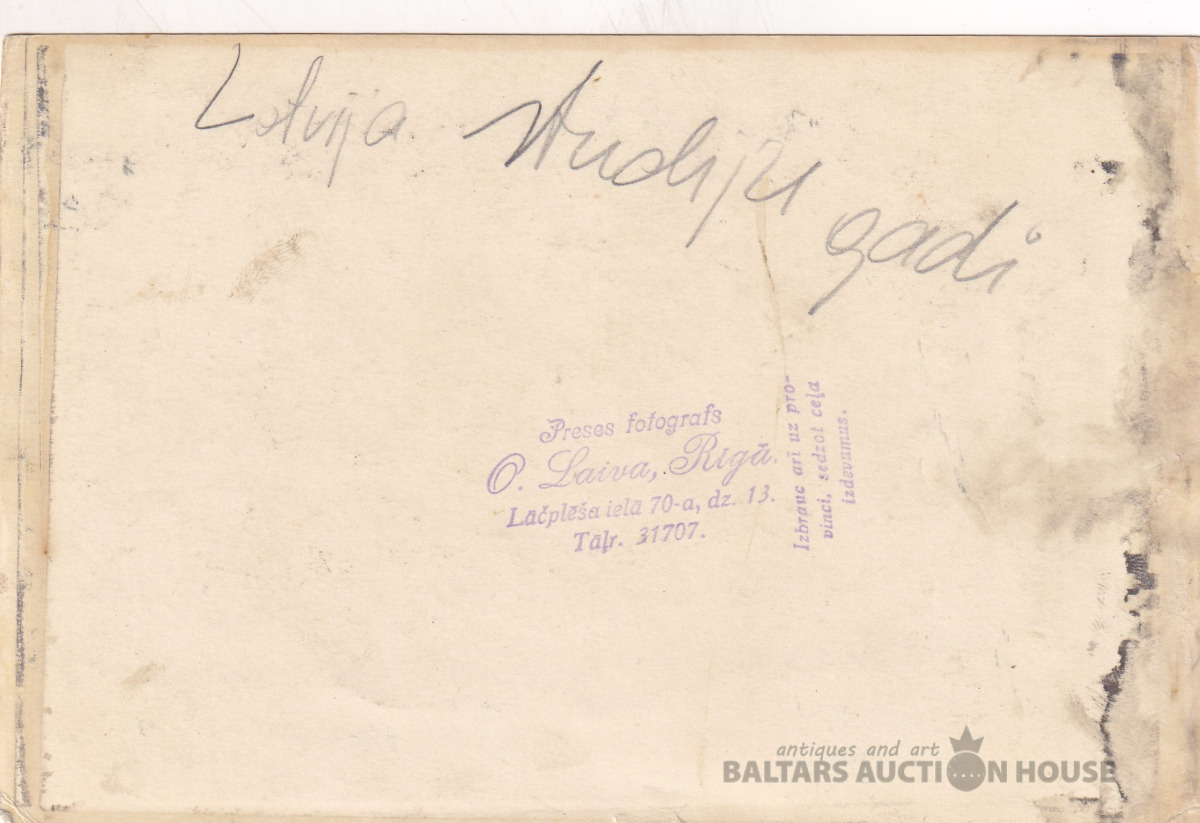 Latvija studiju gadi
Preses fotografs
O. Laiva, Rīgā.
Lāčplēša ielā 70-a, dz. 13.
Tāļr. 31707.
Izbrauc arī uz pro-
vinci, sedzot ceļa
izdevumus.
antiques and art
BALTARS AUCTION HOUSE